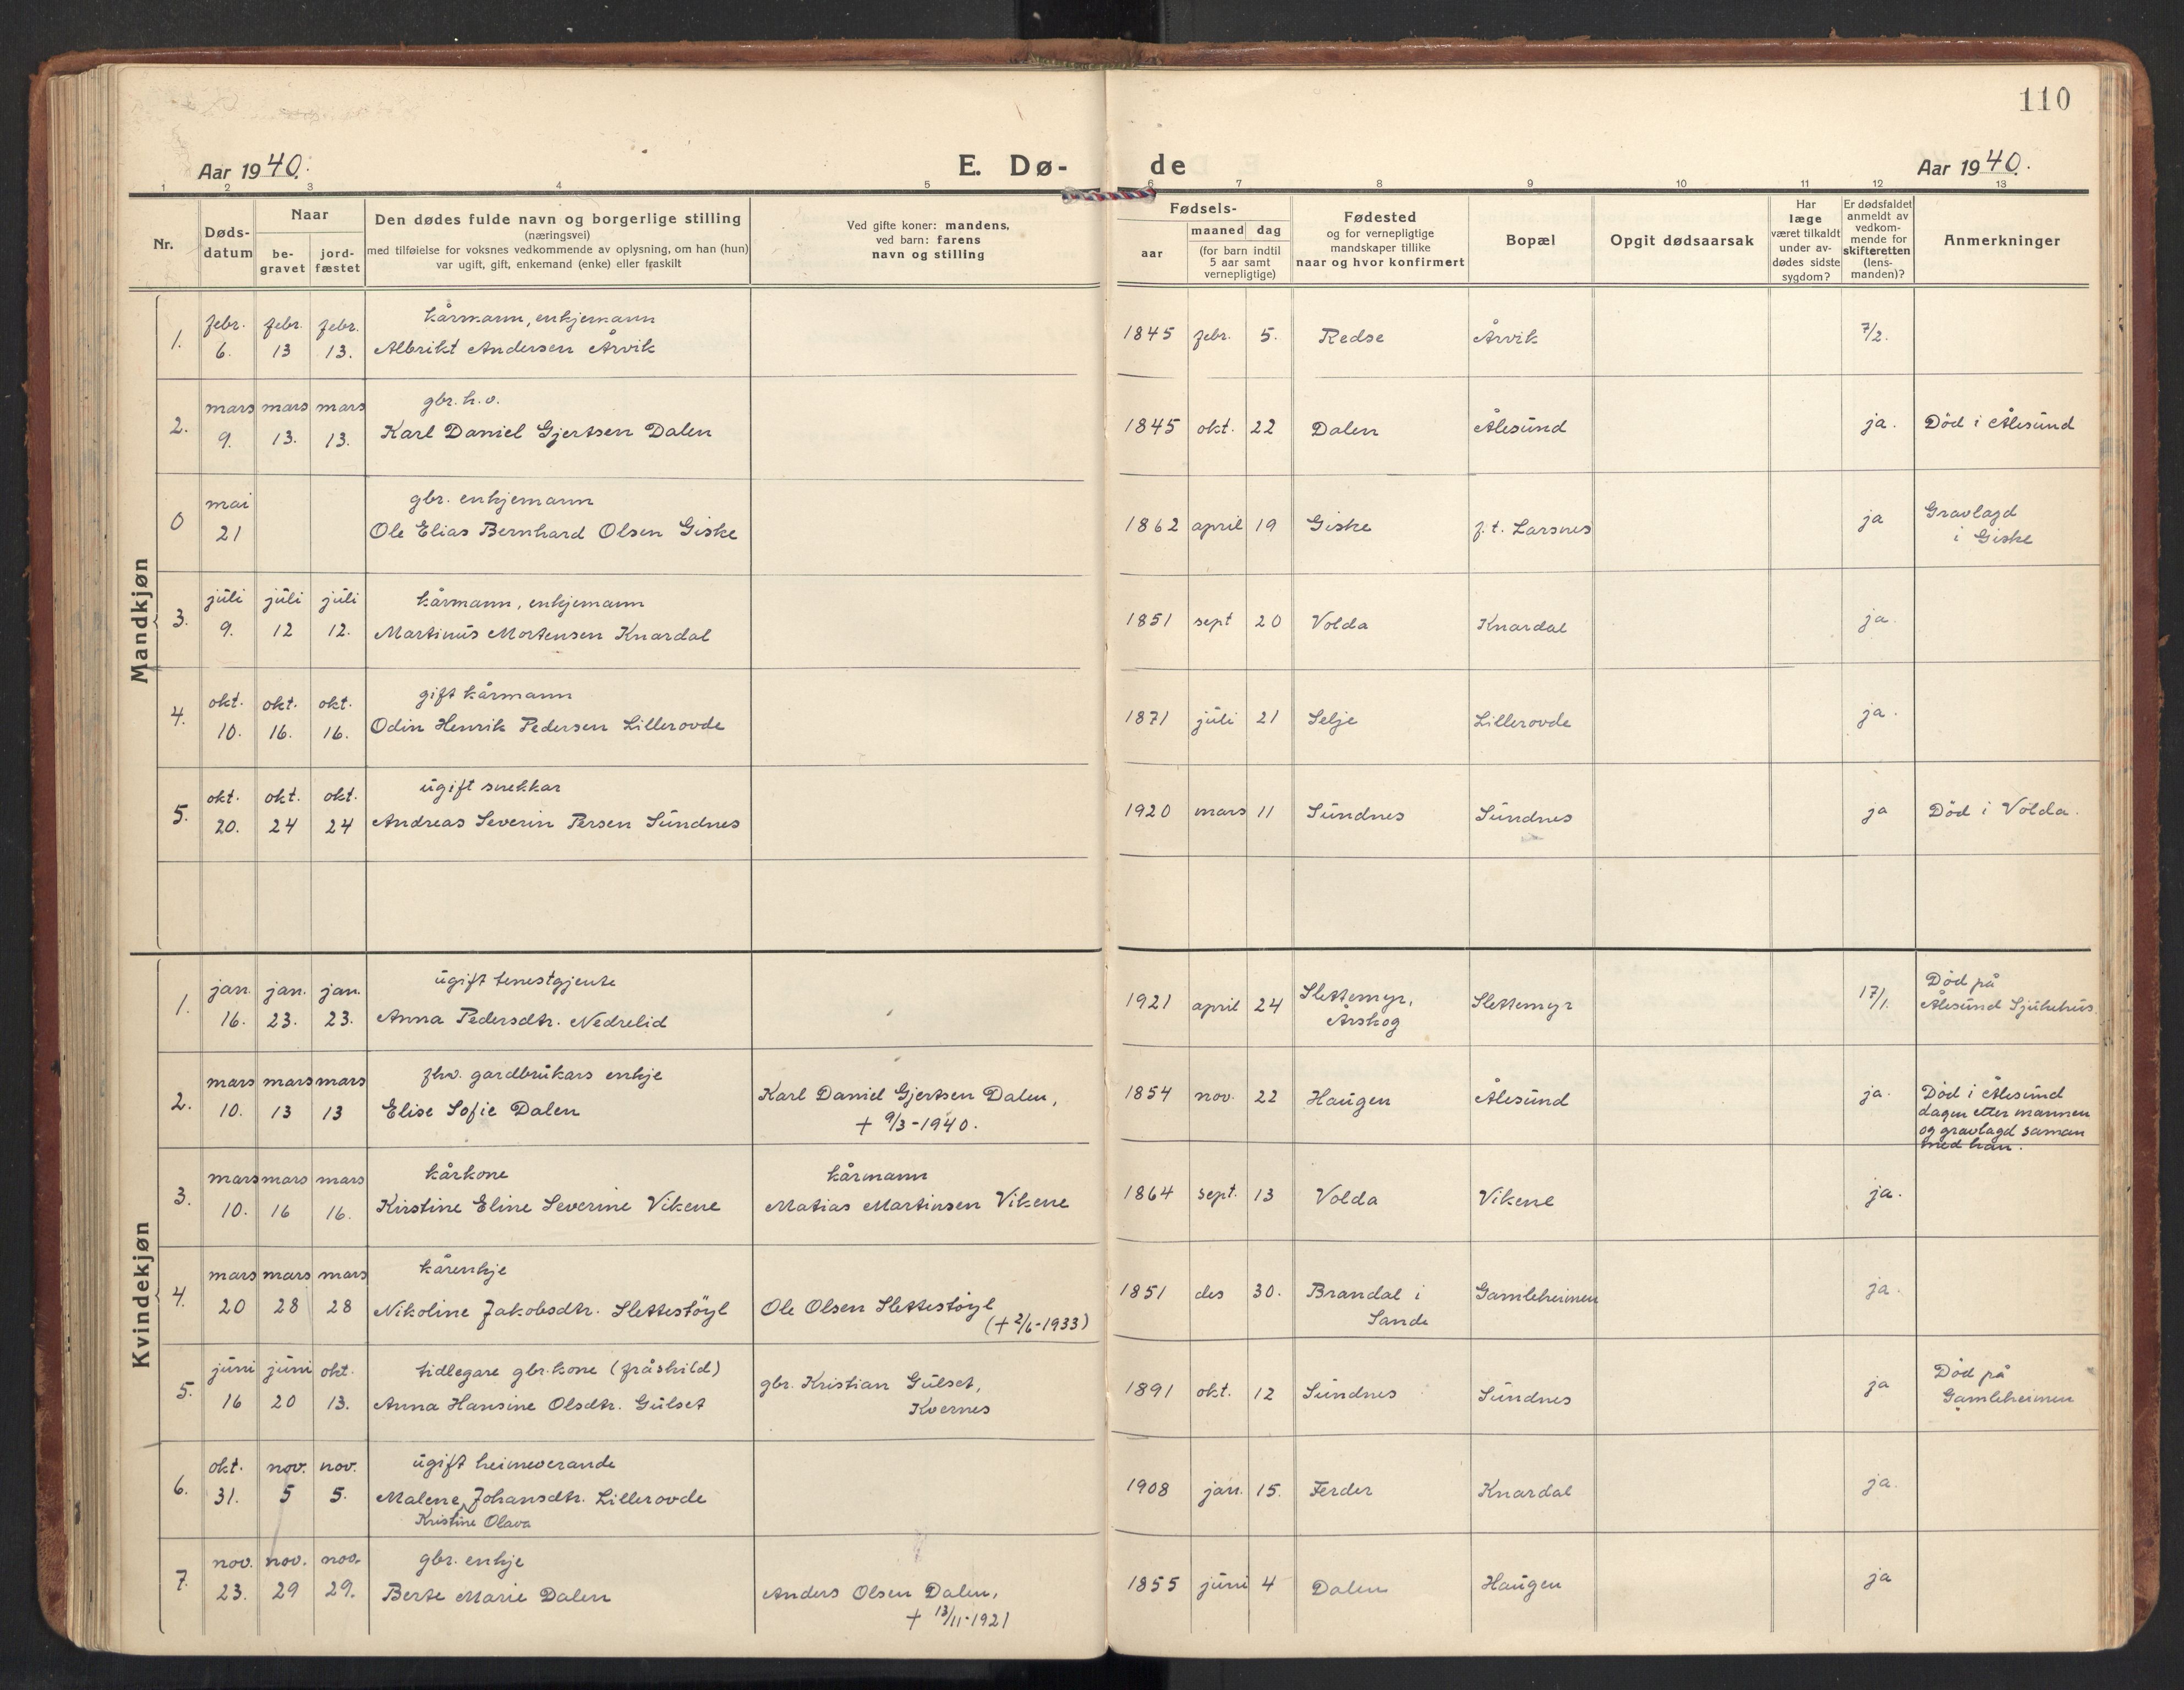 110
Aar 1940.
E. Dø-
de
Aar 1940.
1 2 3 4 5 6 7 8 9 10 11 12 13
Nr.
Døds-
datum
Naar
be-
gravet
jord-
fæstet
Den dødes fulde navn og borgerlige stilling
(næringsvei)
med tilføielse for voksnes vedkommende av oplysning, om han (hun)
var ugift, gift, enkemand (enke) eller fraskilt
Ved gifte koner: mandens,
ved barn: farens
navn og stilling
Fødsels-
aar
maaned dag
(for barn indtil
5 aar samt
vernepligtige)
Fødested
og for vernepligtige
mandskaper tillike
naar og hvor konfirmert
Bopæl
Opgit dødsaarsak
Har
læge
været tilkaldt
under av-
dødes sidste
sygdom?
Er dødsfaldet
anmeldt av
vedkom-
mende for
skifteretten
(lens-
manden)?
Anmerkninger
Mandkjøn
febr. febr. febr. kårmann, enkjemann
1. 6. 13 13. Albrikt Andersen Årvik 1845 febr. 5. Redse Årvik 7/2.
mars mars mars gbr. h.v.
2. 9. 13. 13. Karl Daniel Gjertsen Dalen 1845 okt. 22 Dalen Ålesund ja. Död i Ålesund
mai gbr. enkjemann
0 21 Ole Elias Bernhard Olsen Giske 1862 april 19 Giske f. t. Larsnes ja Gravlagd
i Giske
juli juli juli kårmann, enkjemann
3. 9. 12 12. Martinus Mortensen Knardal 1851 sept 20 Volda Knardal ja.
okt. okt. okt. gift kårmann
4. 10. 16. 16. Odin Henrik Pedersen Lillerovde 1871 juli 21 Selje Lillerovde ja.
okt. okt. okt. ugift snekkar
5. 20. 24 24 Andreas Severin Persen Sundnes 1920 mars 11 Sundnes Sundnes ja Död i Volda.
Kvindekjøn
jan. jan. jan. ugift tenestgjente
1. 16. 23. 23. Anna Pedersdtr. Nedrelid 1921 april 24 Slettemyr,
Årskog Slettemyr 17/1. Död på
Ålesund Sjukehus.
mars mars mars fhv. gardbrukars enkje
2. 10. 13 13 Elise Sofie Dalen Karl Daniel Gjertsen Dalen,
+ 9/3-1940. 1854 nov. 22 Haugen Ålesund ja. Död i Ålesund
dagen etter mannen
og gravlagd saman
med han.
mars mars mars kårkone kårmann
3. 10. 16 16. Kirstine Eline Severine Vikene Matias Martinsen Vikene 1864 sept. 13 Volda Vikene ja.
mars mars mars kårenkje
4. 20 28 28 Nikoline Jakobsdtr. Slettestöyl Ole Olsen Slettestöyl
(+ 2/6-1933) 1851 des 30. Brandal i
Sande Gamleheimen ja.
juni juni okt. tidlegare gbr. kone (fråskild)
5. 16 20 13. Anna Hansine Olsdtr. Gulset gbr. Kristian Gulset,
Kvernes 1891 okt. 12 Sundnes Sundnes ja Död på
Gamleheimen
okt. nov. nov. ugift heimeverande
6. 31. 5 5. Malene Johansdtr. Lillerovde
Kristine Olava 1908 jan. 15. Ferder Knardal ja.
nov. nov. nov. gbr. enkje
7. 23. 29 29. Berte Marie Dalen Anders Olsen Dalen,
+ 13/11-1921 1855 juni 4 Dalen Haugen ja